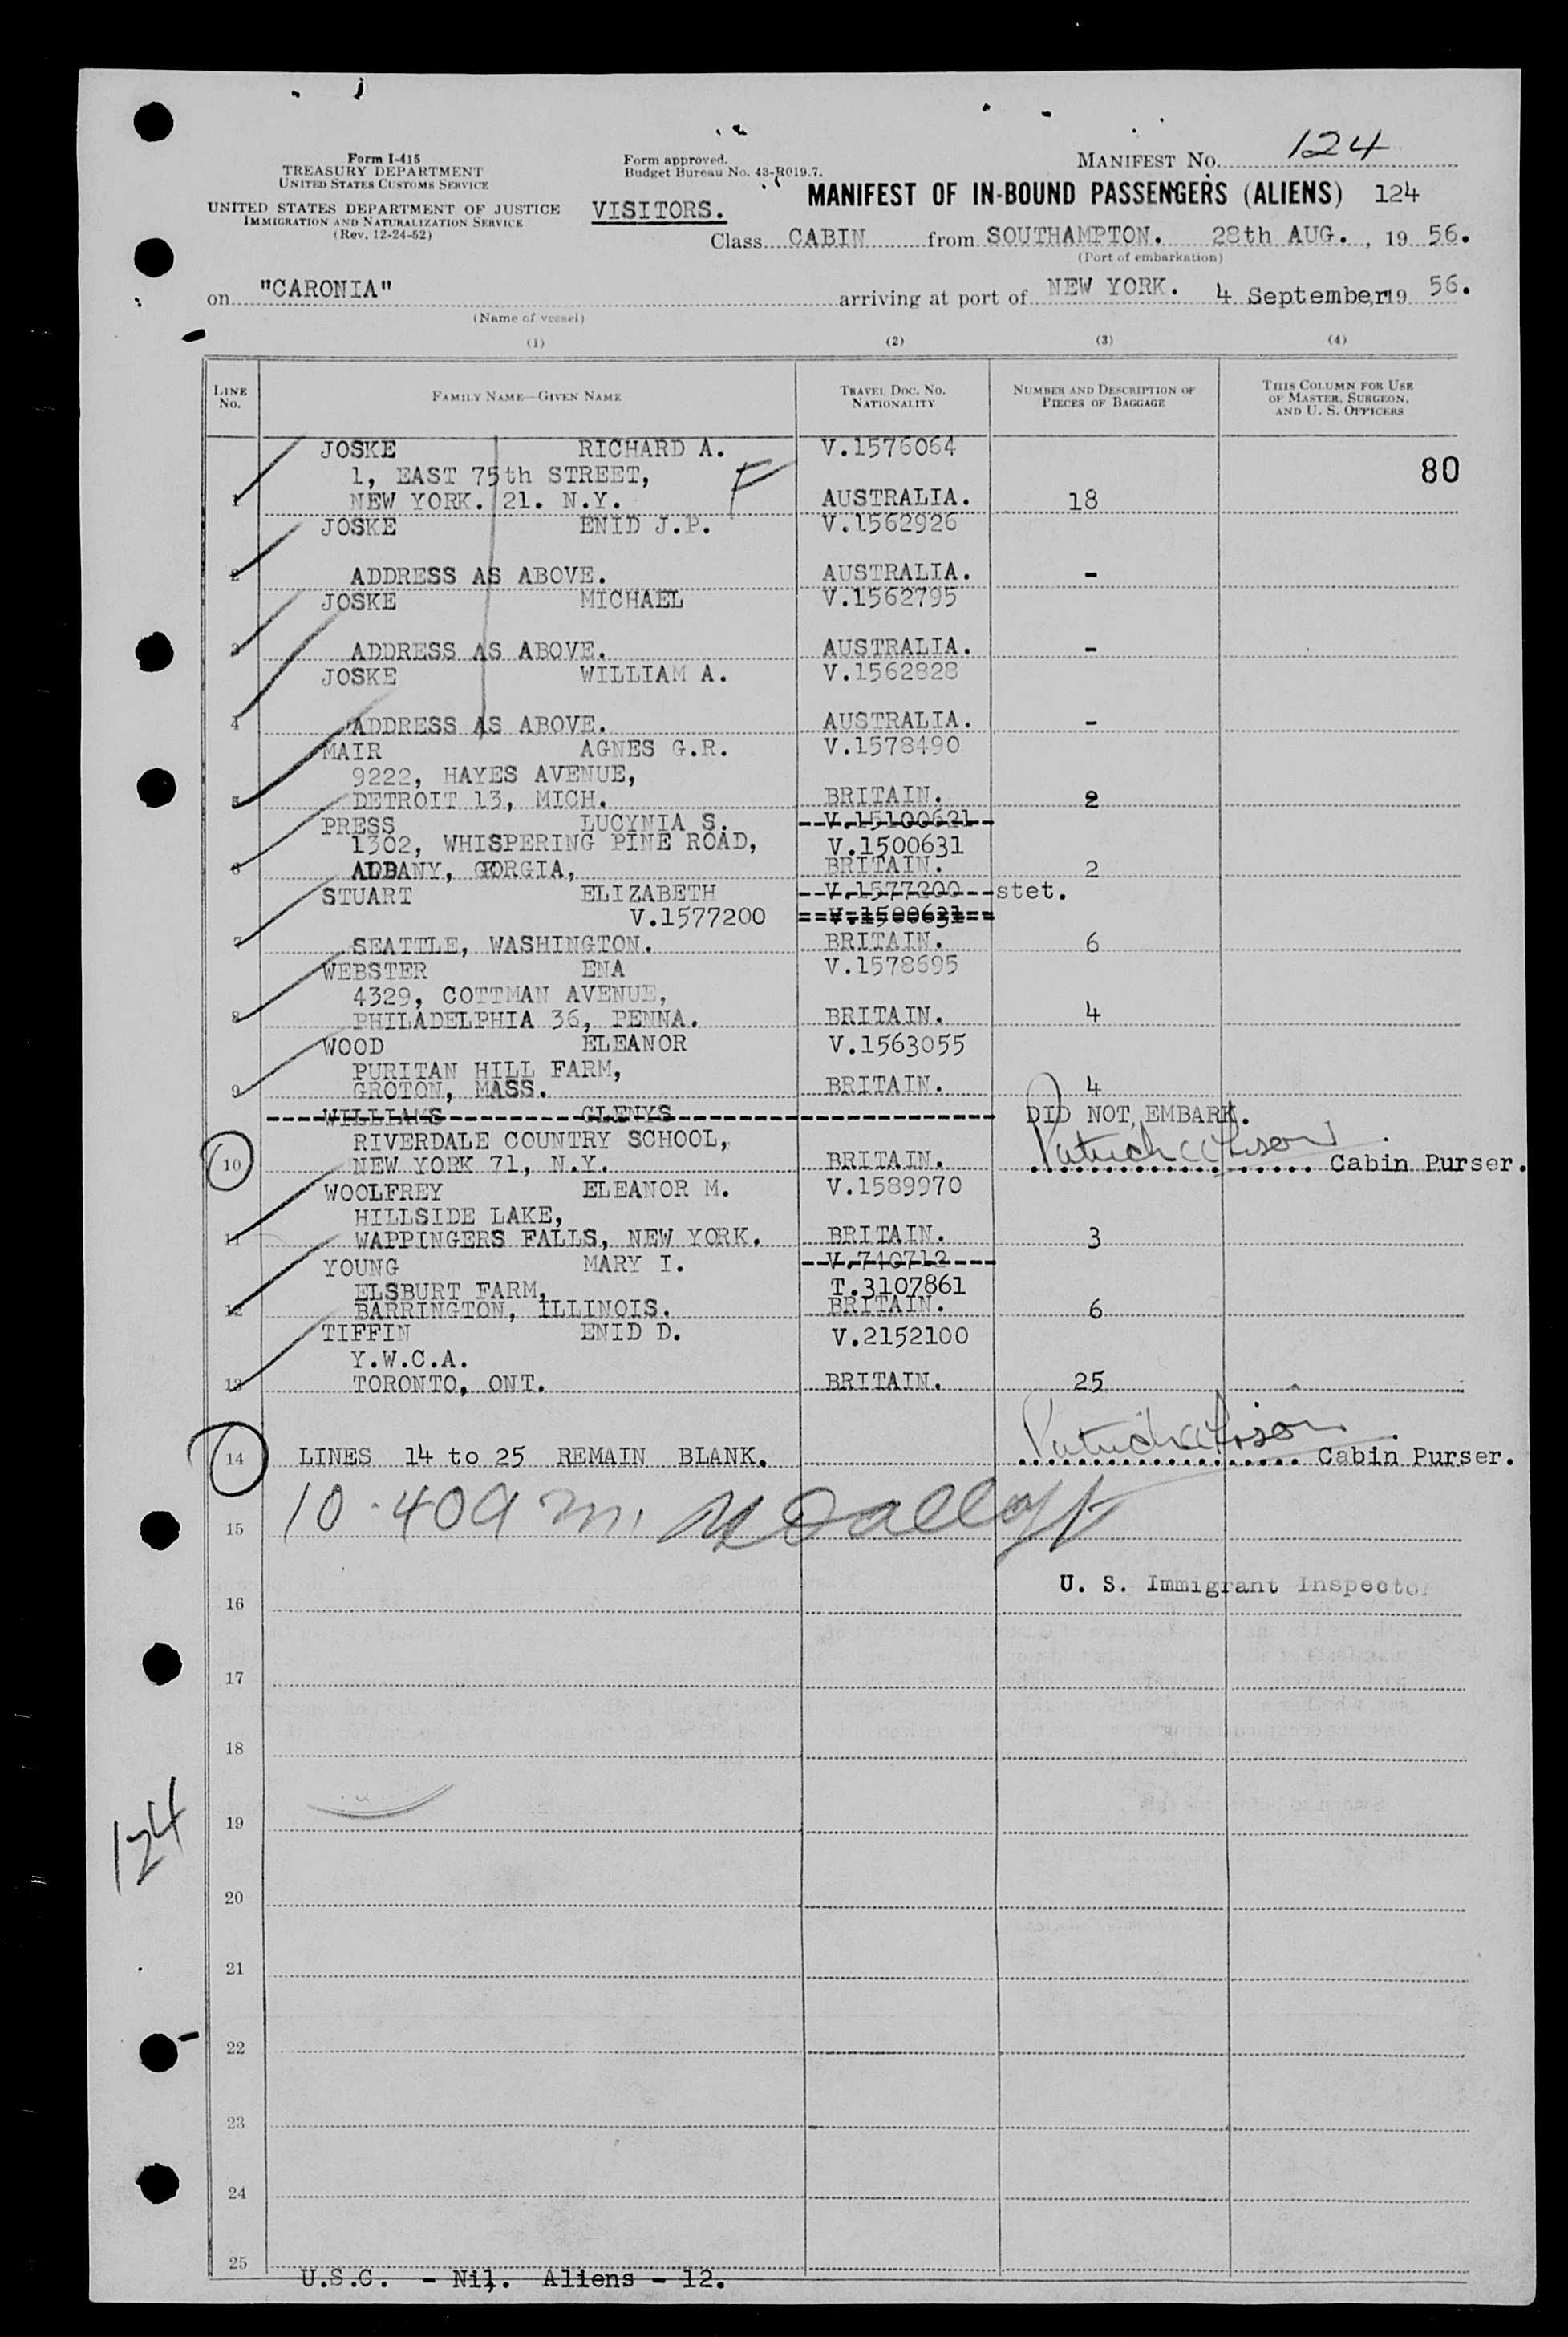 Form I-415
TREASURY DEPARTMENT
UNITED STATES CUSTOMS SERVICE
UNITED STATES DEPARTMENT OF JUSTICE
IMMIGRATION AND NATURALIZATION SERVICE
(Rev. 12-24-52)
Form approved.
Budget Bureau No. 43-R019.7.
VISITORS.
MANIFEST No. 124
MANIFEST OF IN-BOUND PASSENGERS (ALIENS) 124
Class CABIN from SOUTHAMPTON. 28th AUG. , 19 56.
(Port of embarkation)
on "CARONIA" arriving at port of NEW YORK. 4 September, 19 56.
(Name of vessel)
(1) (2) (3) (4)
LINE No. FAMILY NAME—GIVEN NAME TRAVEL DOC. NO. NATIONALITY NUMBER AND DESCRIPTION OF PIECES OF BAGGAGE THIS COLUMN FOR USE OF MASTER, SURGEON, AND U. S. OFFICERS
JOSKE RICHARD A. V.1576064
1, EAST 75th STREET, F 80
1 NEW YORK. 21. N.Y. AUSTRALIA. 18
JOSKE ENID J.P. V.1562926
2 ADDRESS AS ABOVE. AUSTRALIA. -
JOSKE MICHAEL V.1562795
3 ADDRESS AS ABOVE. AUSTRALIA. -
JOSKE WILLIAM A. V.1562828
4 ADDRESS AS ABOVE. AUSTRALIA. -
MAIR AGNES G.R. V.1578490
9222, HAYES AVENUE,
5 DETROIT 13, MICH. BRITAIN. 2
PRESS LUCYNIA S. V.15100621
1302, WHISPERING PINE ROAD, V.1500631
6 ALBANY, GEORGIA, BRITAIN. 2
STUART ELIZABETH V.1577200 stet.
V.1577200 V.1500631
7 SEATTLE, WASHINGTON. BRITAIN. 6
WEBSTER ENA V.1578695
4329, COTTMAN AVENUE,
8 PHILADELPHIA 36, PENNA. BRITAIN. 4
WOOD ELEANOR V.1563055
PURITAN HILL FARM,
9 GROTON, MASS. BRITAIN. 4
WILLIAMS GLENYS DID NOT EMBARK.
RIVERDALE COUNTRY SCHOOL,
10 NEW YORK 71, N.Y. BRITAIN. Cabin Purser.
WOOLFREY ELEANOR M. V.1589970
HILLSIDE LAKE,
11 WAPPINGERS FALLS, NEW YORK. BRITAIN. 3
YOUNG MARY I. V.740712
ELSBURT FARM, T.3107861
12 BARRINGTON, ILLINOIS. BRITAIN. 6
TIFFIN ENID D. V.2152100
Y.W.C.A.
13 TORONTO, ONT. BRITAIN. 25
14 LINES 14 to 25 REMAIN BLANK. Cabin Purser.
15 10.40 a m.
U. S. Immigrant Inspector
16
17
18
19
124
20
21
22
23
24
25
U.S.C. - Nil. Aliens - 12.